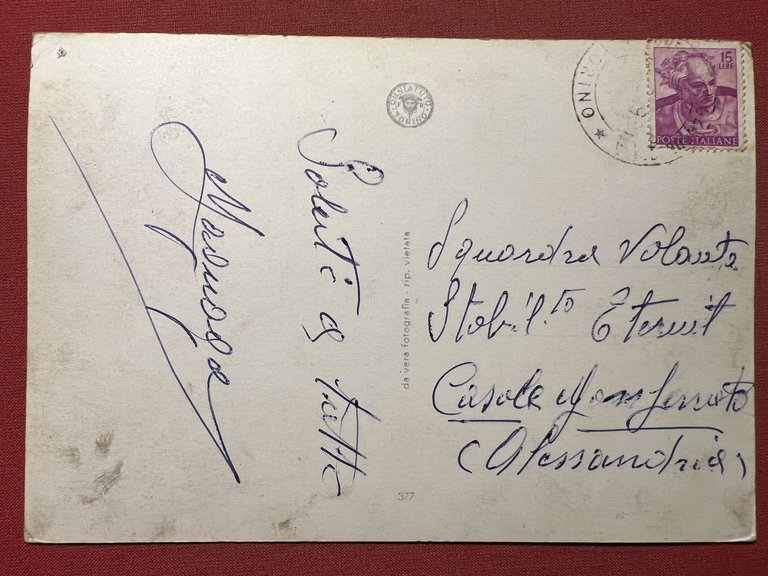 Saluti a tutti
OMNIAFOTO
TORINO
da vera fotografia - rip. vietata
377
TORINO
15
LIRE
POSTE ITALIANE
Squardra Volante
Stabil.to Eternit
Casale Monferrato
(Alessandria)